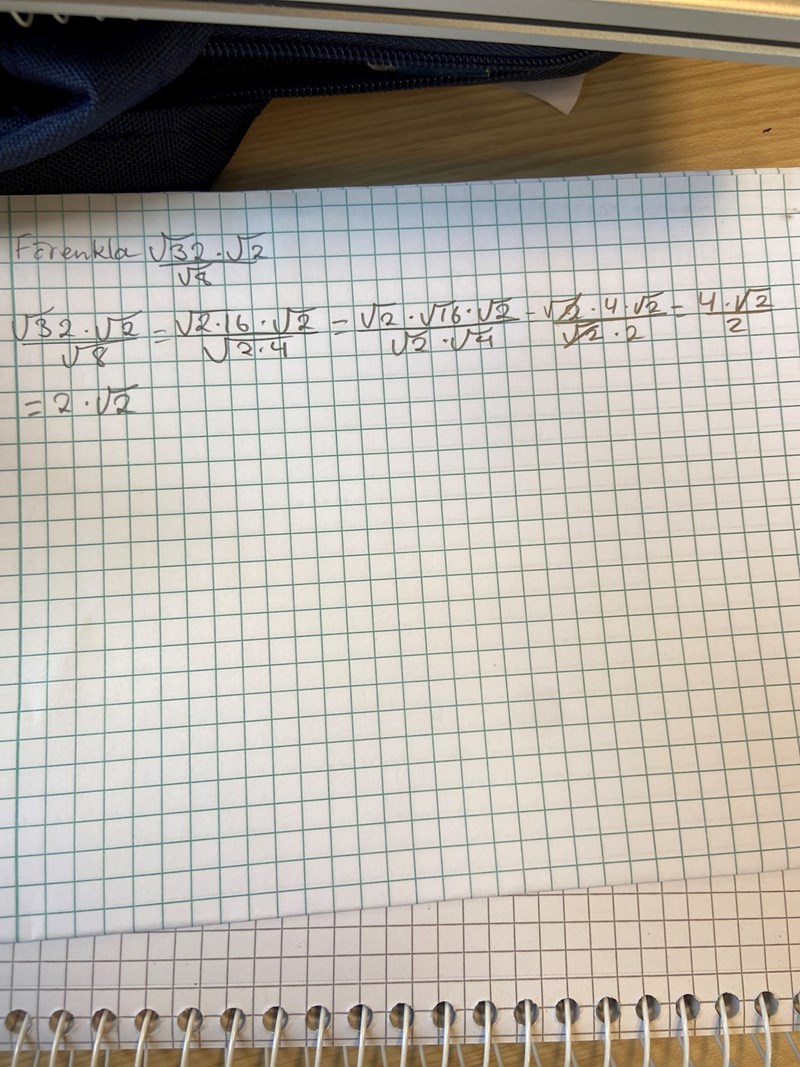 Förenkla √32 · √2 / √8
√32 · √2 / √8 = √2·16 · √2 / √2·4 = √2 · √16 · √2 / √2 · √4 = √2 · 4 · √2 / √2 · 2 = 4 · √2 / 2
= 2 · √2